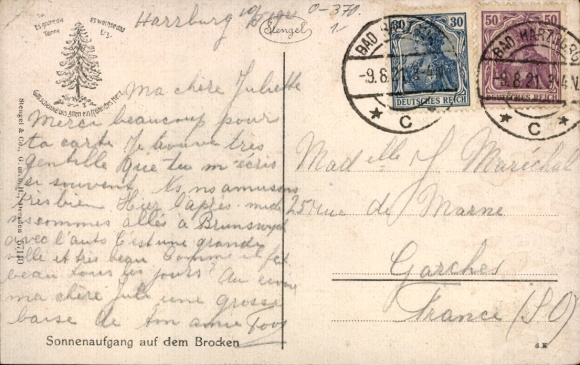 Harzburg
0-370.
Es grüne die Tanne
Es wachse das Erz
Gott schenke uns Allen ein fröhliches Herz
Stengel
30 30
DEUTSCHES REICH
50 50
DEUTSCHES REICH
BAD HARZBURG
-9.8.21.
* C *
BAD HARZBURG
-9.8.21. V.
* C *
Ma chère Juliette
Merci beaucoup pour
ta carte. Je trouve très
gentille que tu m'écris
si souvent. Ns. ns amusons
très bien Hier l'après-midi
ns sommes allés à Brunswyck
avec l'auto C'est une grande
ville et très beau Comme il fait
beau tous les jours? Au revoir
ma chère Juli une grosse
baise de ton amie
Mad elle J Maréchal
25 rue de Marne
Garches
France (S.O)
Stengel & Co., G. m. b. H., Dresden 57110
Sonnenaufgang auf dem Brocken